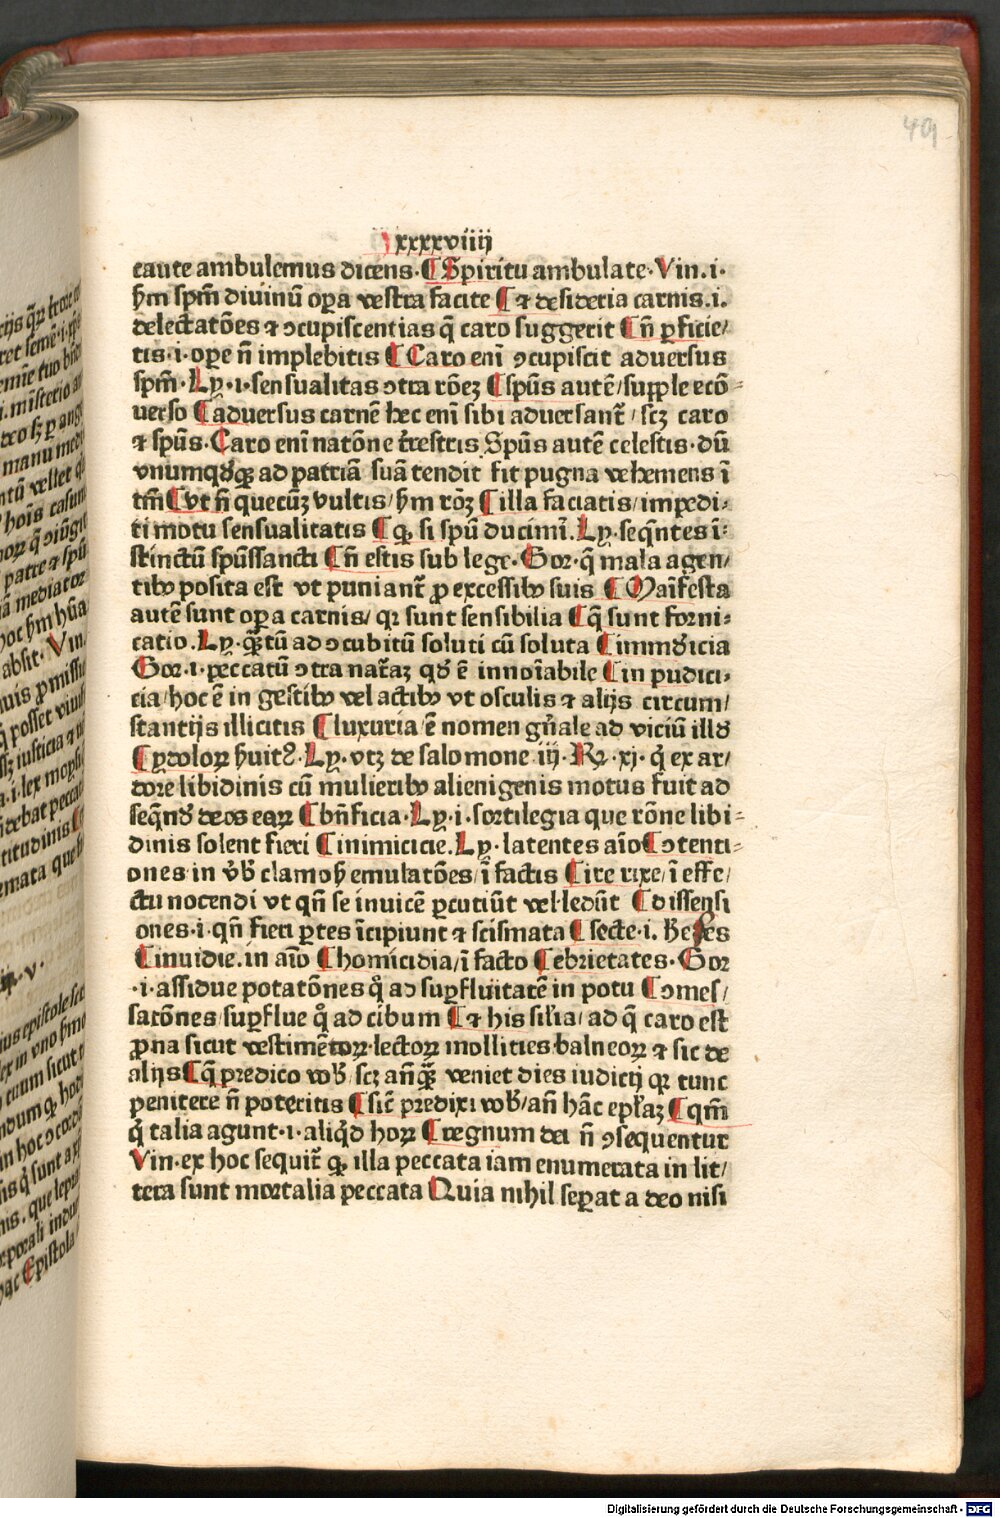 49
xxxxviiij
caute ambulemus dicens. ¶ Spiritu ambulate. Vin. i.
ẜm spm̄ diuinū oꝑa vestra facite ¶ ⁊ desideria carnis .i.
delectatōes ⁊ ↄcupiscentias q̄ caro suggerit ¶ n̄ ꝑficie/
tis .i. oꝑe n̄ implebitis ¶ Caro eni ↄcupiscit aduersus
spm̄. Ly. i. sensualitas ↄtra rōeꝫ ¶ spūs autē / supple ecō-
uerso ¶ aduersus carnē hec eni sibi aduersant̄ / scꝫ caro
⁊ spūs. Caro eni natōne tr̄estris Spūs autē celestis. dū
vnumqd̛qꝫ ad patriā suā tendit fit pugna vehemens ī
tm̄ ¶ vt n̄ quecūꝫ vultis / ẜm rōꝫ ¶ illa faciatis / impedi-
ti motu sensualitatis ¶ qꝫ si spū ducimī. Ly. seq̄ntes i-
stinctū spūssancti ¶ n̄ estis sub lege. Gor. q̄ mala agen/
tibꝰ posita est vt puniant̄ ꝓ excessibꝰ suis ¶ Maīfesta
autē sunt oꝑa carnis / qꝛ sunt sensibilia ¶ q̄ sunt forni-
catio. Ly. qꝫtū ad ↄcubitū soluti cū soluta ¶ immūdicia
Gor. i. peccatū ↄtra nat̄aꝫ qd̛ ē innoīabile ¶ in pudici-
cia / hoc ē in gestibꝰ vel actibꝰ vt osculis ⁊ alijs circum/
stantijs illicitis ¶ luxuria / ē nomen gn̄ale ad viciū illd̛
¶ ydoloꝝ ẜuitꝰ. Ly. vtꝫ de salomone iij. Rꝫ. xj. q̇ ex ar/
dore libidinis cū mulieribꝰ alienigenis motus fuit ad
seqn̄d̛ deos eaꝝ ¶ bn̄ficia. Ly. i. sortilegia que rōne libi-
dinis solent fieri ¶ inimicicie. Ly. latentes aīo ¶ ↄtenti-
ones in v̛b̛ clamoẜ emulatōes / ī factis ¶ ire rixe / ī effe/
ctu nocendi vt qn̄ se inuicē ꝑcutiūt vel ledūt ¶ dissensi
ones .i. qn̄ fieri ꝑtes īcipiunt ⁊ scismata ¶ secte .i. heses
¶ inuidie. in aīo ¶ homicidia / ī facto ¶ ebrietates. Gor
.i. assidue potatōnes q̊ ad suꝑfluitatē in potu ¶ ↄmes/
satōnes / suꝑflue q̊ ad cibum ¶ ⁊ his silīa / ad q̄ caro est
ꝓna sicut vestimētoꝝ. lectoꝝ mollities balneoꝝ ⁊ sic de
alijs ¶ q̄ predico vob̛ / scꝫ an̄qꝫ veniet dies iudicij qꝛ tunc
penitere n̄ poteritis ¶ sic̄ predixi vob̛ / an̄ hāc epl̄aꝫ ¶ qm̄
q̇ talia agunt .i. aliqd̛ hoꝝ ¶ regnum dei n̄ ↄsequentur
Vin. ex hoc sequit̄ qꝫ illa peccata iam enumerata in lit/
tera sunt mortalia peccata Quia nihil seꝑat a deo nisi
Digitalisierung gefördert durch die Deutsche Forschungsgemeinschaft - DFG